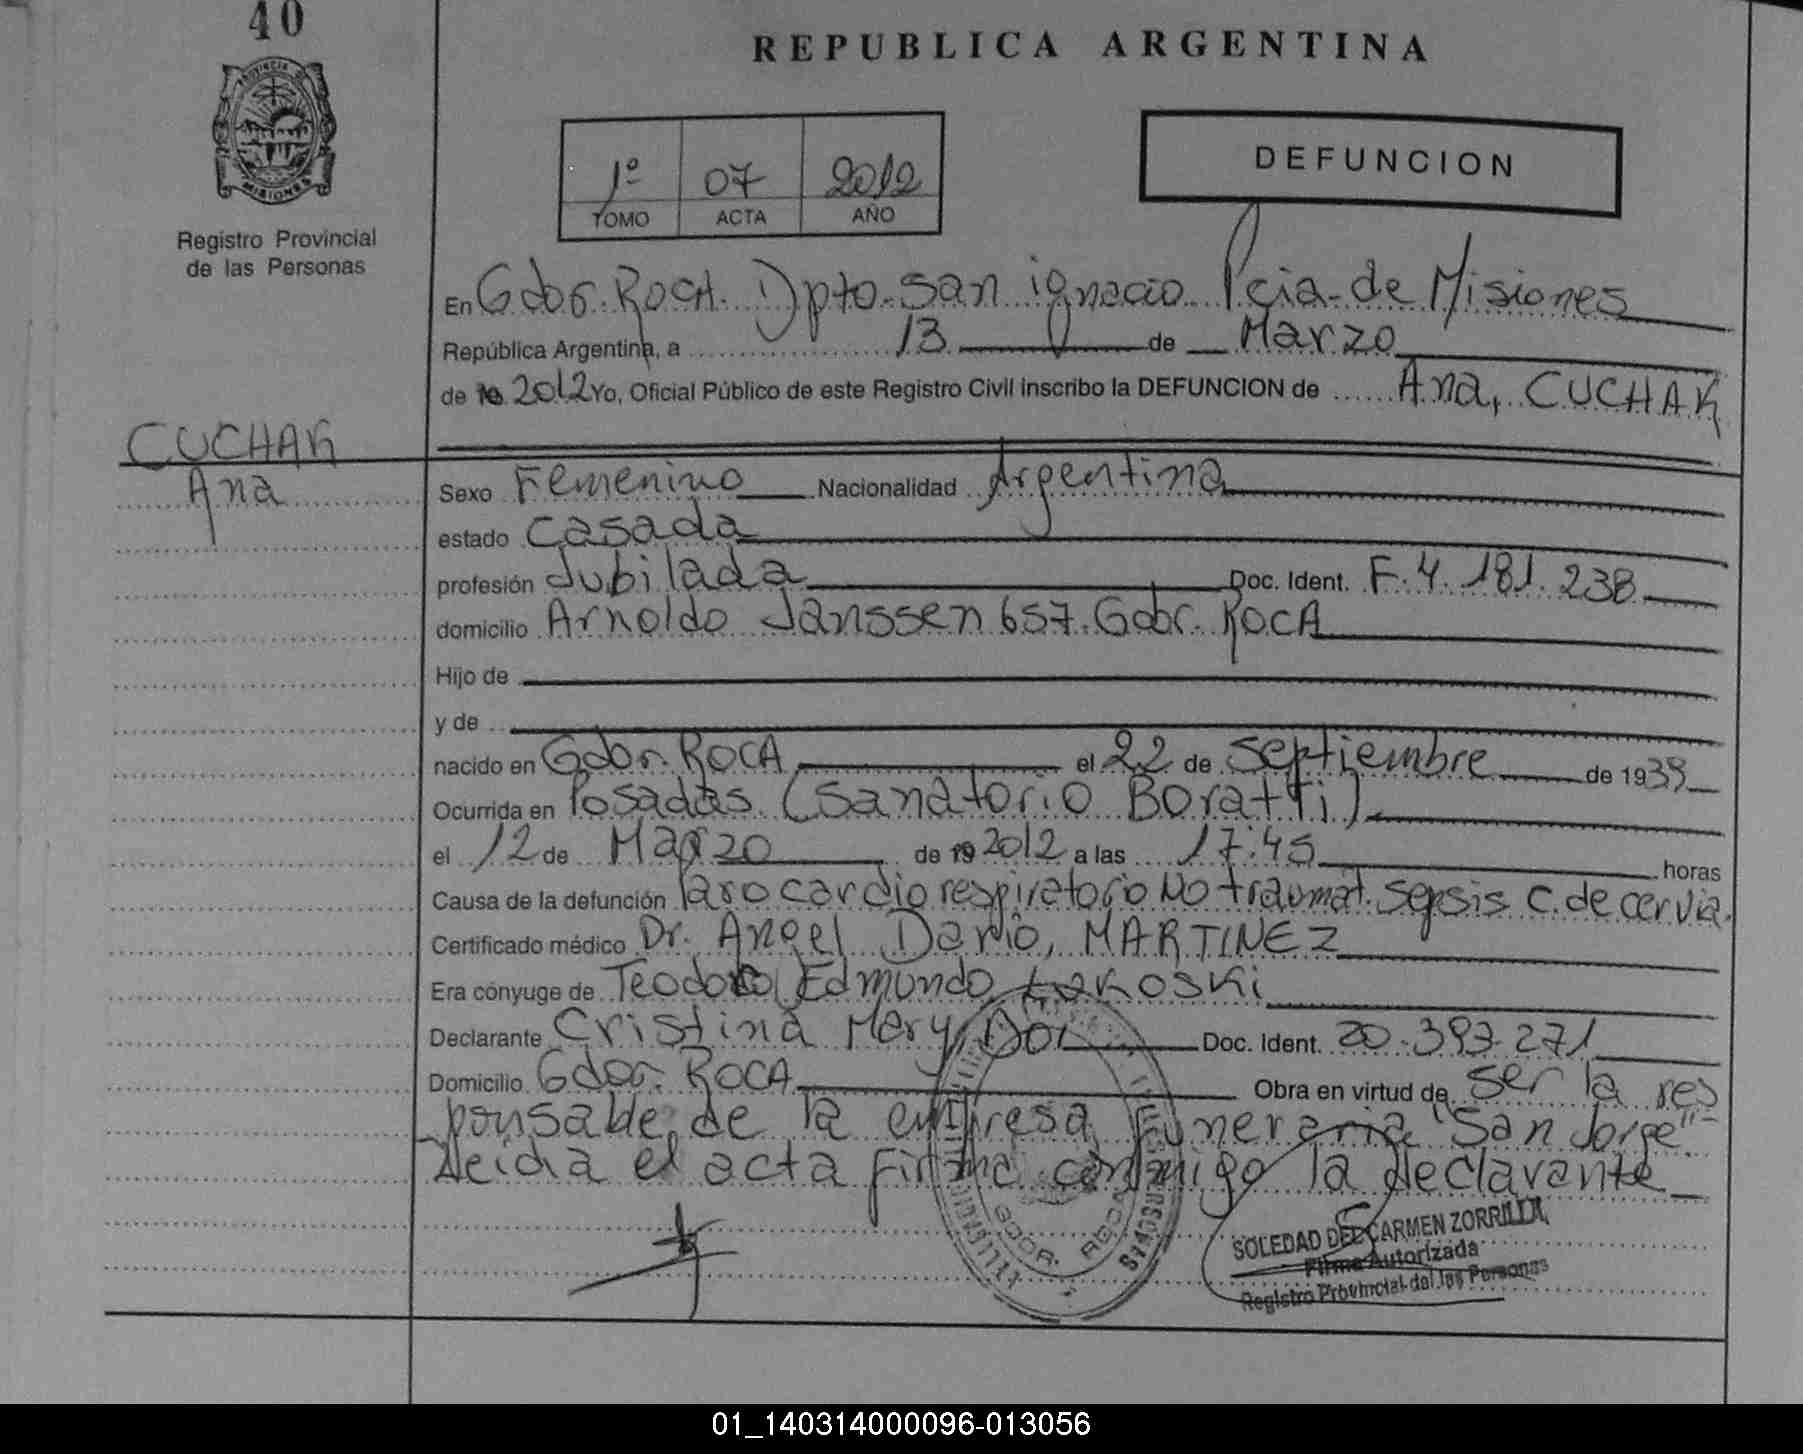 40
REPUBLICA ARGENTINA
PROVINCIA DE
MISIONES
Registro Provincial
de las Personas
1º 07 2012
TOMO ACTA AÑO
DEFUNCION
En Gdor. ROCA. Dpto. San ignacio Pcia. de Misiones
República Argentina, a 13 de Marzo
de 2012 Yo, Oficial Público de este Registro Civil inscribo la DEFUNCION de Ana, CUCHAK
CUCHAK
Ana
Sexo Femenino Nacionalidad Argentina
estado Casada
profesión Jubilada Doc. Ident. F. 4.181.238
domicilio Arnoldo Janssen 657. Gdor. ROCA
Hijo de
y de
nacido en Gdor. ROCA el 22 de Septiembre de 1939
Ocurrida en Posadas. (Sanatorio Boratti)
el 12 de Marzo de 19 2012 a las 17:45 horas
Causa de la defunción Paro cardiorespiratorio No traumat. Sepsis C. de cervix.
Certificado médico Dr. Angel Dario, MARTINEZ
Era cónyuge de Teodoro Edmundo
Declarante Cristina Mery Doc. Ident. 20.393.271
Domicilio Gdor. ROCA Obra en virtud de ser la res
ponsable de la empresa Funeraria "San Jorge"
Leida el acta Firma conmigo la declarante
GDOR. ROCA
SOLEDAD DEL CARMEN ZORRILLA
Firma Autorizada
Registro Provincial de las Personas
01_140314000096-013056